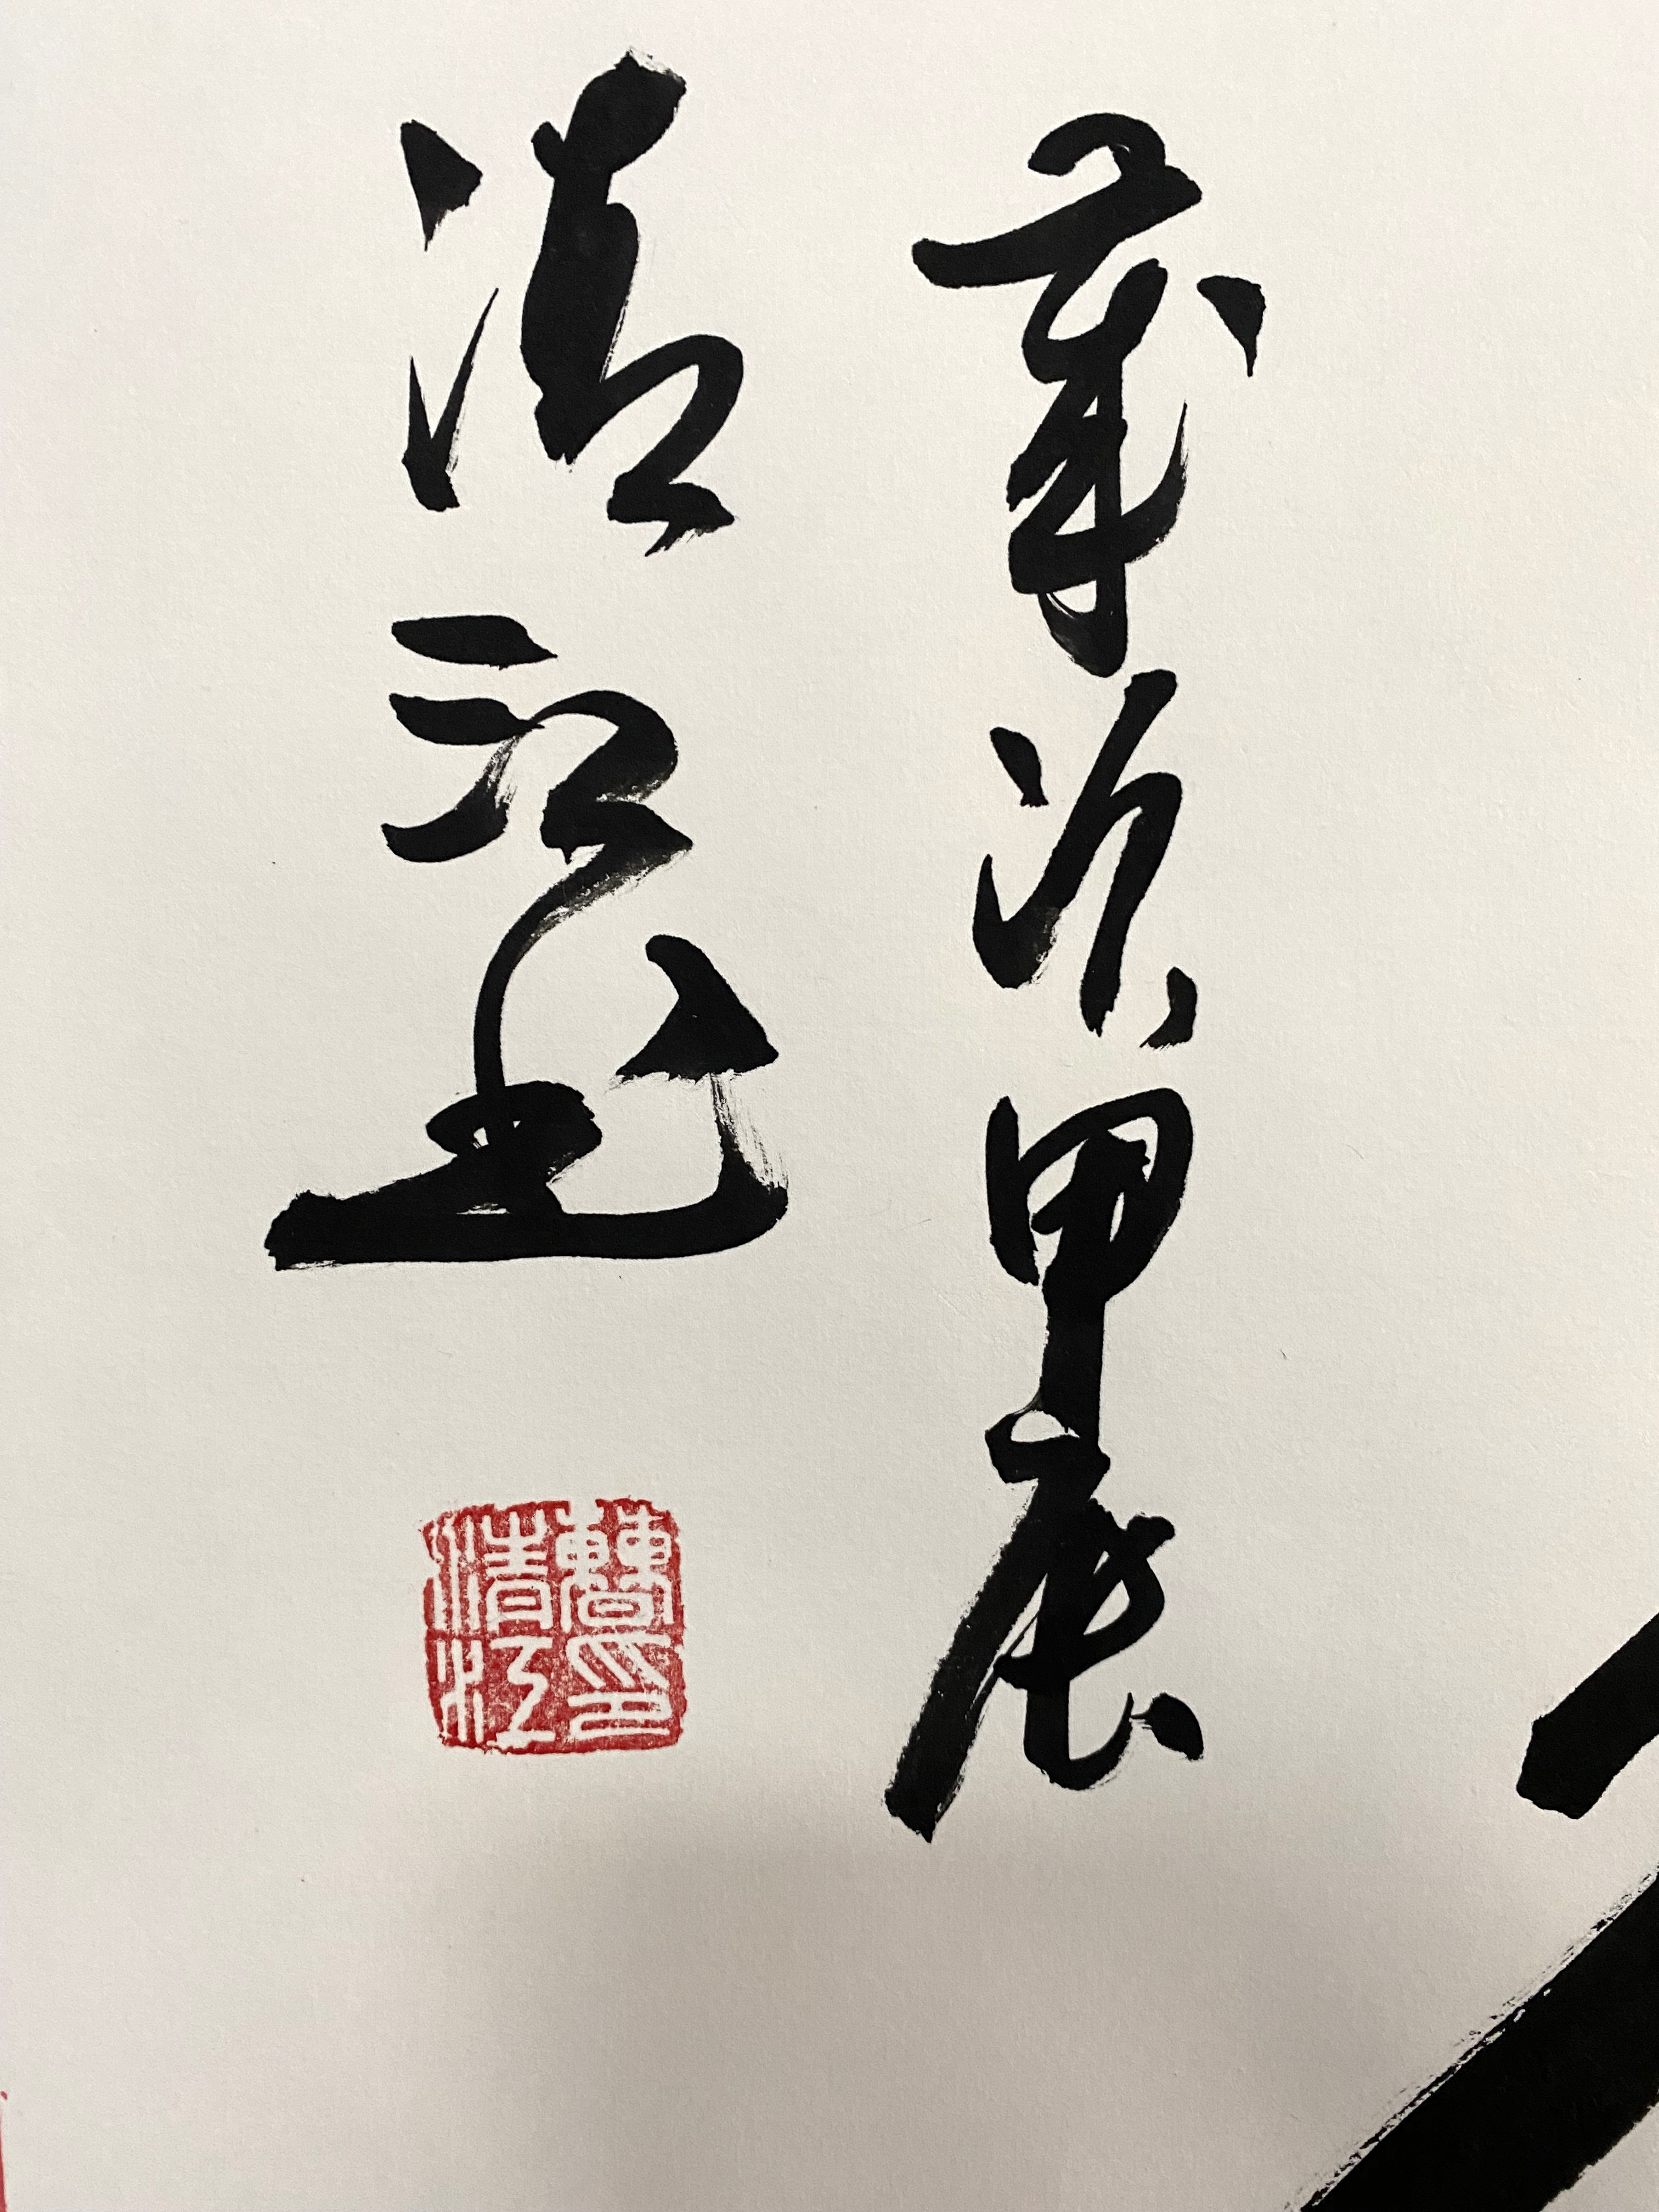 歲次甲辰
清江書
曹印
清江